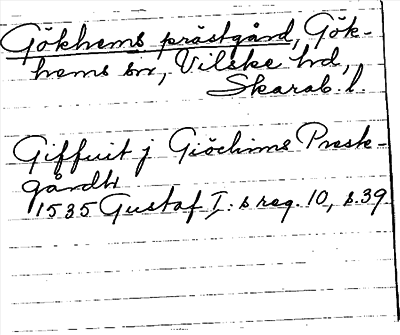 Gökhems prästgård, Gök-
hems sn, Vilske hd,
Skarab. l.
Giffuit j Giöchims Presk-
gårdh
1535 Gustaf I:s reg. 10, s. 39